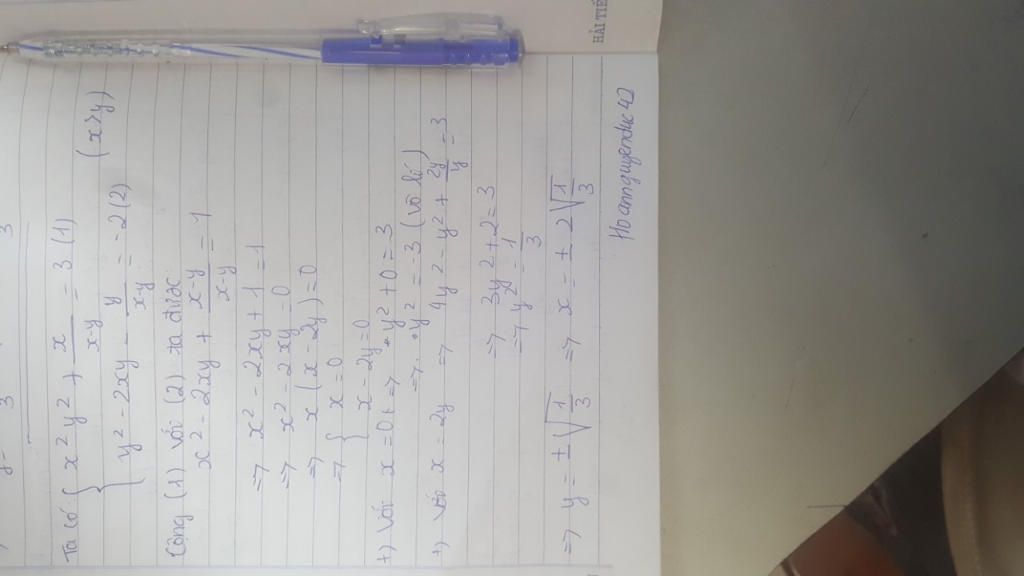 HẢI TIẾ
y= 3 3
Ta có { x² y² + x/(x-y) = 3 (1)
y² - 2xy - y/(x-y) = -2 (2) (x≥y)
Cộng (1) với (2) ta được
x² - 2xy + (x-y)/(x-y) = 1
=> x² - 2xy + 1 = 1
=> x² - 2xy = 0
=> x (x - 2y) = 0
=> { x = 0
x - 2y = 0
+) Với x = 0 => -y² + 0 = 3
=> y² = -3 (vô lí)
+) với x = 2y => 4y² - y² + 2y/y = 3
=> 3y² + 2 = 3
=> y² = 1/3
=> y = ± √(1/3) => x = ± 2√(1/3)
Hoannguyenduc42